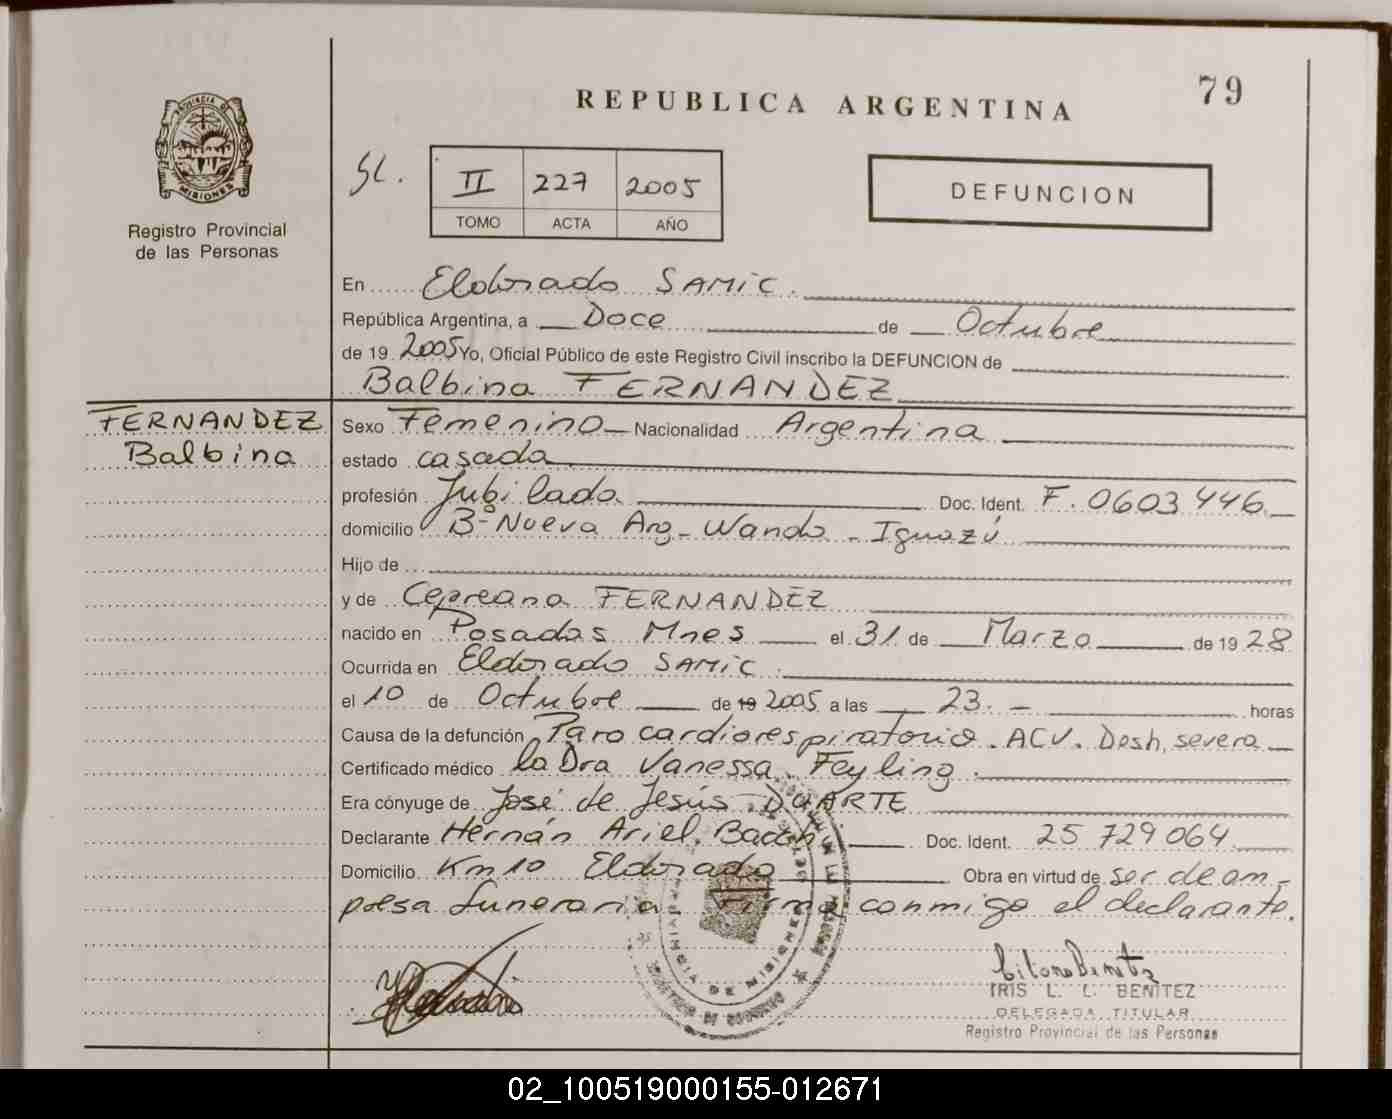 79
REPUBLICA ARGENTINA
PROVINCIA DE MISIONES
Registro Provincial
de las Personas
II 227 2005
TOMO ACTA AÑO
DEFUNCION
En Eldorado SAMIC.
República Argentina, a Doce de Octubre
de 19 2005 Yo, Oficial Público de este Registro Civil inscribo la DEFUNCION de
Balbina FERNANDEZ
FERNANDEZ
Balbina
Sexo Femenino Nacionalidad Argentina
estado casada
profesión Jubilada Doc. Ident. F. 0603446
domicilio Bº Nueva Arg - Wanda - Iguazú
Hijo de
y de Cepreana FERNANDEZ
nacido en Posadas Mnes el 31 de Marzo de 19 28
Ocurrida en Eldorado SAMIC.
el 10 de Octubre de 19 2005 a las 23. - horas
Causa de la defunción Paro cardiorespiratorio. ACV. Desh. severa
Certificado médico la Dra Vanessa Feyling.
Era cónyuge de José de Jesús DUARTE
Declarante Hernán Ariel Doc. Ident. 25 729 064
Domicilio Km 10 Eldorado Obra en virtud de ser de em-
presa funeraria Firma conmigo el declarante.
IRIS L. C. BENITEZ
DELEGADA TITULAR
Registro Provincial de las Personas
PROVINCIA DE MISIONES
02_100519000155-012671